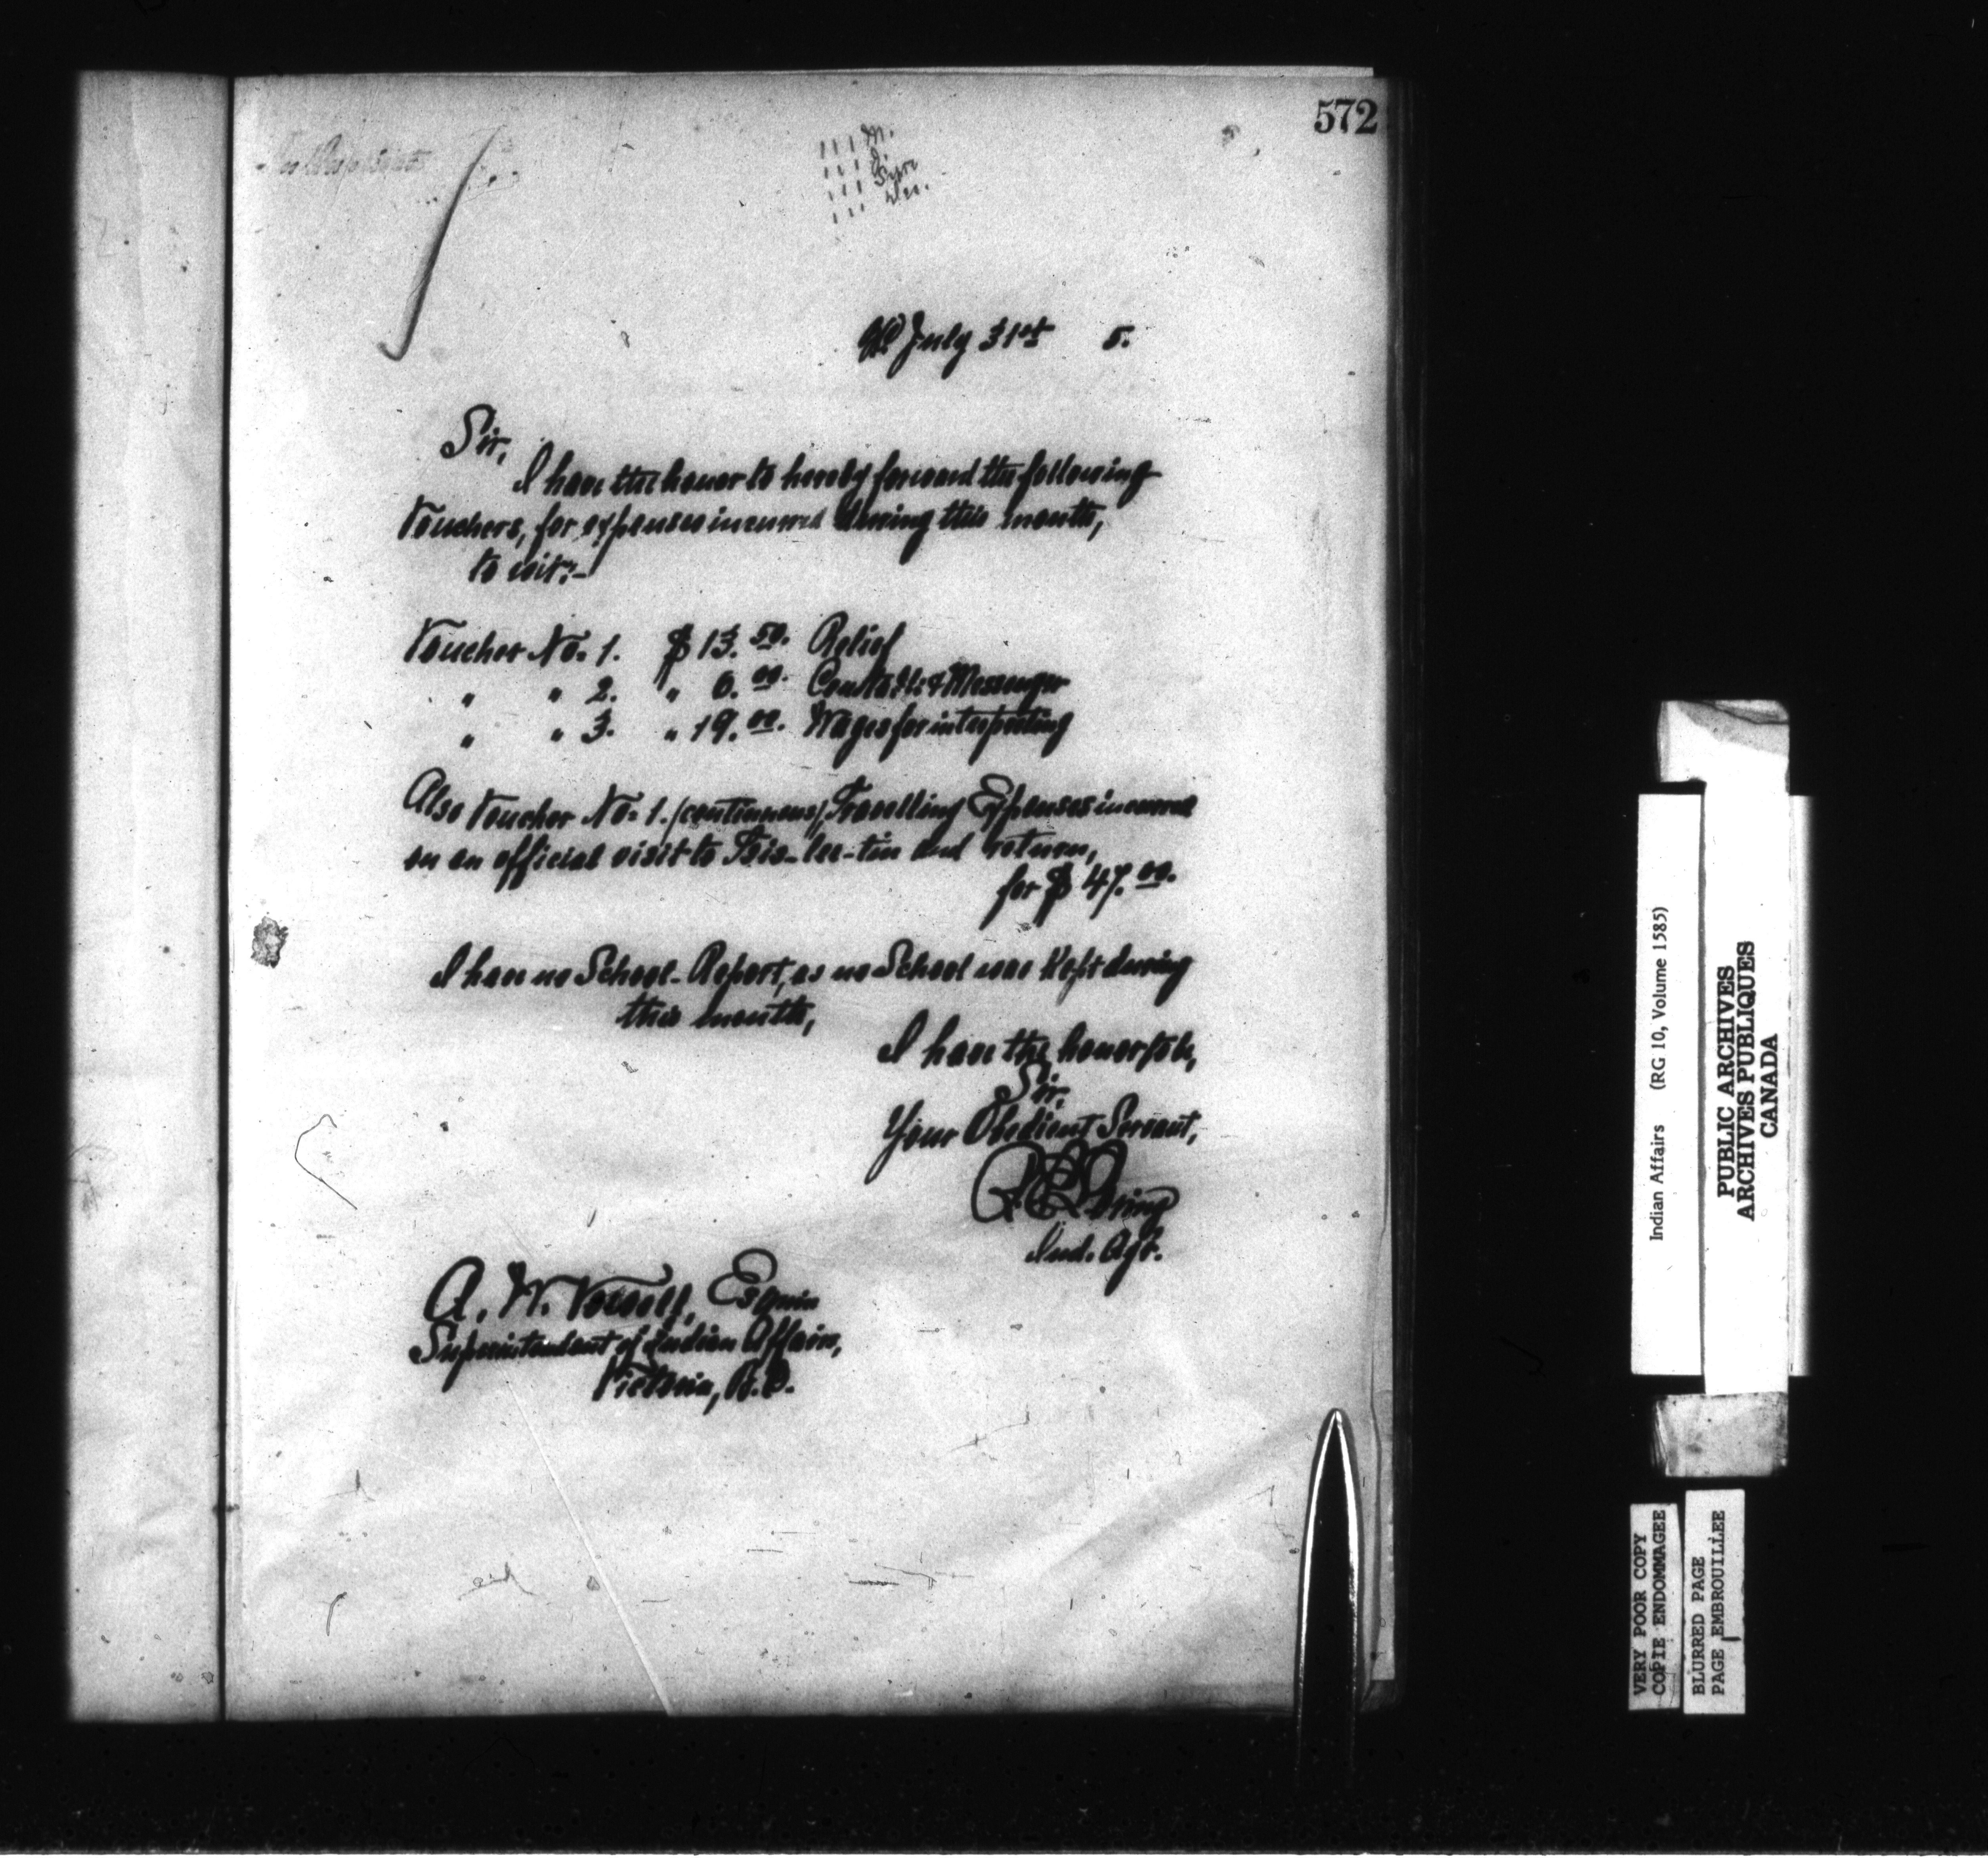 572
July 31st 5.
Sir,
I have the honor to hereby forward the following
Vouchers, for expenses incurred during this month,
to wit:-
Voucher No. 1. $ 13.50. Relief
" " 2. " 6.00. Constable & Messenger
" " 3. " 19.00. Wages for interpreting
Also Voucher No. 1. (continuous) Travelling Expenses incurred
on an official visit to and return,
for $ 47.00.
I have no School-Report, as no School was kept during
this month,
I have the honor to be,
Sir,
Your Obedient Servant,
Ind. Agt.
A. W. Vowell, Esquire
Superintendent of Indian Affairs,
Victoria, B.C.
Indian Affairs (RG 10, Volume 1585)
PUBLIC ARCHIVES
ARCHIVES PUBLIQUES
CANADA
VERY POOR COPY
COPIE ENDOMMAGEE
BLURRED PAGE
PAGE EMBROUILLEE